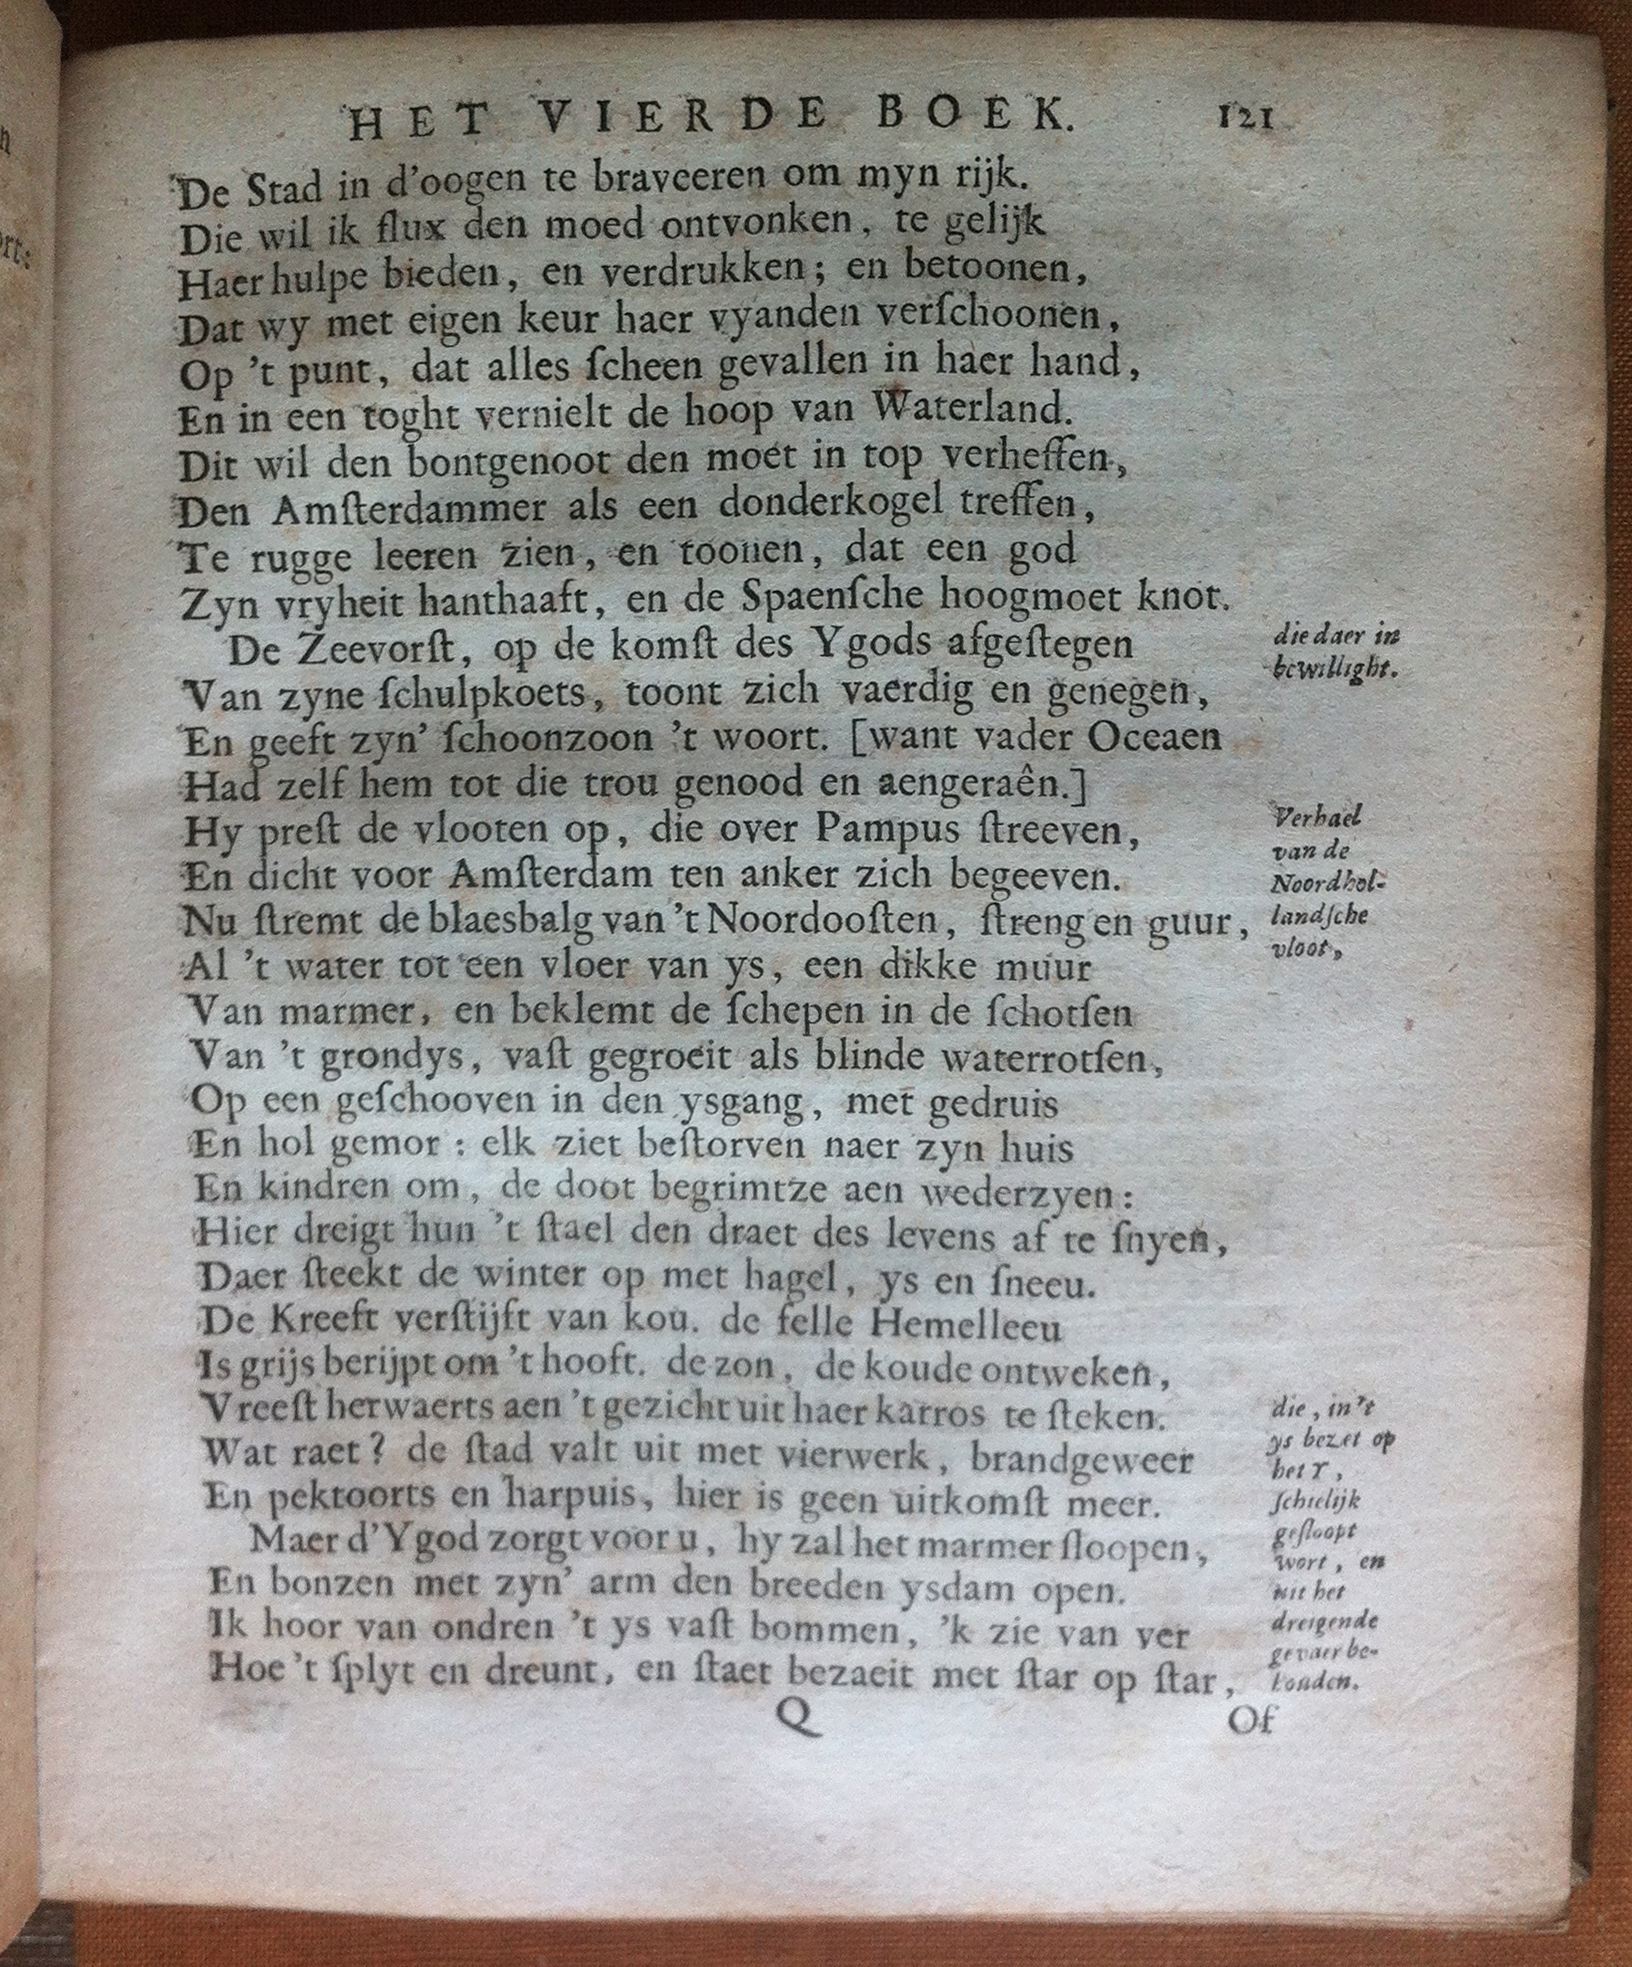 HET VIERDE BOEK. 121
De Stad in d'oogen te braveeren om myn rijk.
Die wil ik flux den moed ontvonken, te gelijk
Haer hulpe bieden, en verdrukken; en betoonen,
Dat wy met eigen keur haer vyanden verſchoonen,
Op 't punt, dat alles ſcheen gevallen in haer hand,
En in een toght vernielt de hoop van Waterland.
Dit wil den bontgenoot den moet in top verheffen,
Den Amſterdammer als een donderkogel treffen,
Te rugge leeren zien, en toonen, dat een god
Zyn vryheit hanthaaft, en de Spaenſche hoogmoet knot.
De Zeevorſt, op de komſt des Ygods afgeſtegen
die daer in
bewillight.
Van zyne ſchulpkoets, toont zich vaerdig en genegen,
En geeft zyn' ſchoonzoon 't woort. [want vader Oceaen
Had zelf hem tot die trou genood en aengeraên.]
Hy preſt de vlooten op, die over Pampus ſtreeven,
Verhael
van de
Noordhol-
landſche
vloot,
En dicht voor Amſterdam ten anker zich begeeven.
Nu ſtremt de blaesbalg van 't Noordooſten, ſtreng en guur,
Al 't water tot een vloer van ys, een dikke muur
Van marmer, en beklemt de ſchepen in de ſchotſen
Van 't grondys, vaſt gegroeit als blinde waterrotſen,
Op een geſchooven in den ysgang, met gedruis
En hol gemor: elk ziet beſtorven naer zyn huis
En kindren om, de doot begrimtze aen wederzyen:
Hier dreigt hun 't ſtael den draet des levens af te ſnyen,
Daer ſteekt de winter op met hagel, ys en ſneeu.
De Kreeft verſtijft van kou. de felle Hemelleeu
Is grijs berijpt om 't hooft. de zon, de koude ontweken,
Vreeſt herwaerts aen 't gezicht uit haer karros te ſteken.
die, in't
ys bezet op
het Y,
ſchielijk
geſloopt
wort, en
uit het
dreigende
gevaer be-
houden.
Wat raet? de ſtad valt uit met vierwerk, brandgeweer
En pektoorts en harpuis, hier is geen uitkomſt meer.
Maer d'Ygod zorgt voor u, hy zal het marmer ſloopen,
En bonzen met zyn' arm den breeden ysdam open.
Ik hoor van ondren 't ys vaſt bommen, 'k zie van ver
Hoe 't ſplyt en dreunt, en ſtaet bezaeit met ſtar op ſtar,
Q Of